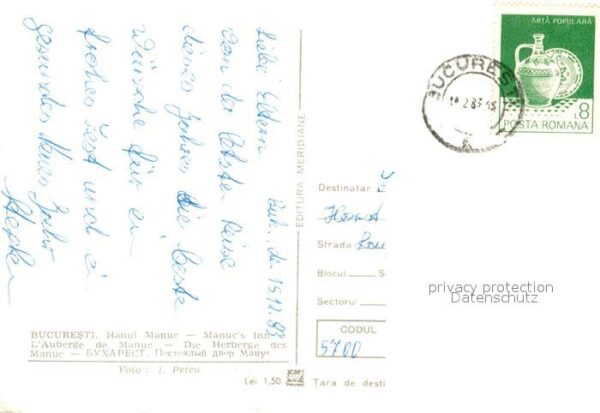 Buk., den 15.12.83
Liebe Eltern
Von der letzten Reise
dieses Jahres die beste
Wünsche für ein
frohes Fest und ein
gesundes Neues Jahr
BUCUREȘTI. Hanul Manuc — Manuc's Inn
L'Auberge de Manuc — Die Herberge des
Manuc — БУХАРЕСТ. Постоялый двор Манук
Foto: I. Petcu
Lei 1,50
EDITURA MERIDIANE
ARTĂ POPULARĂ
L8
POSTA ROMANA
BUCUREȘTI
Destinatar
Strada
Blocul S
Sectorul
CODUL
5700
Tara de desti
privacy protection
Datenschutz